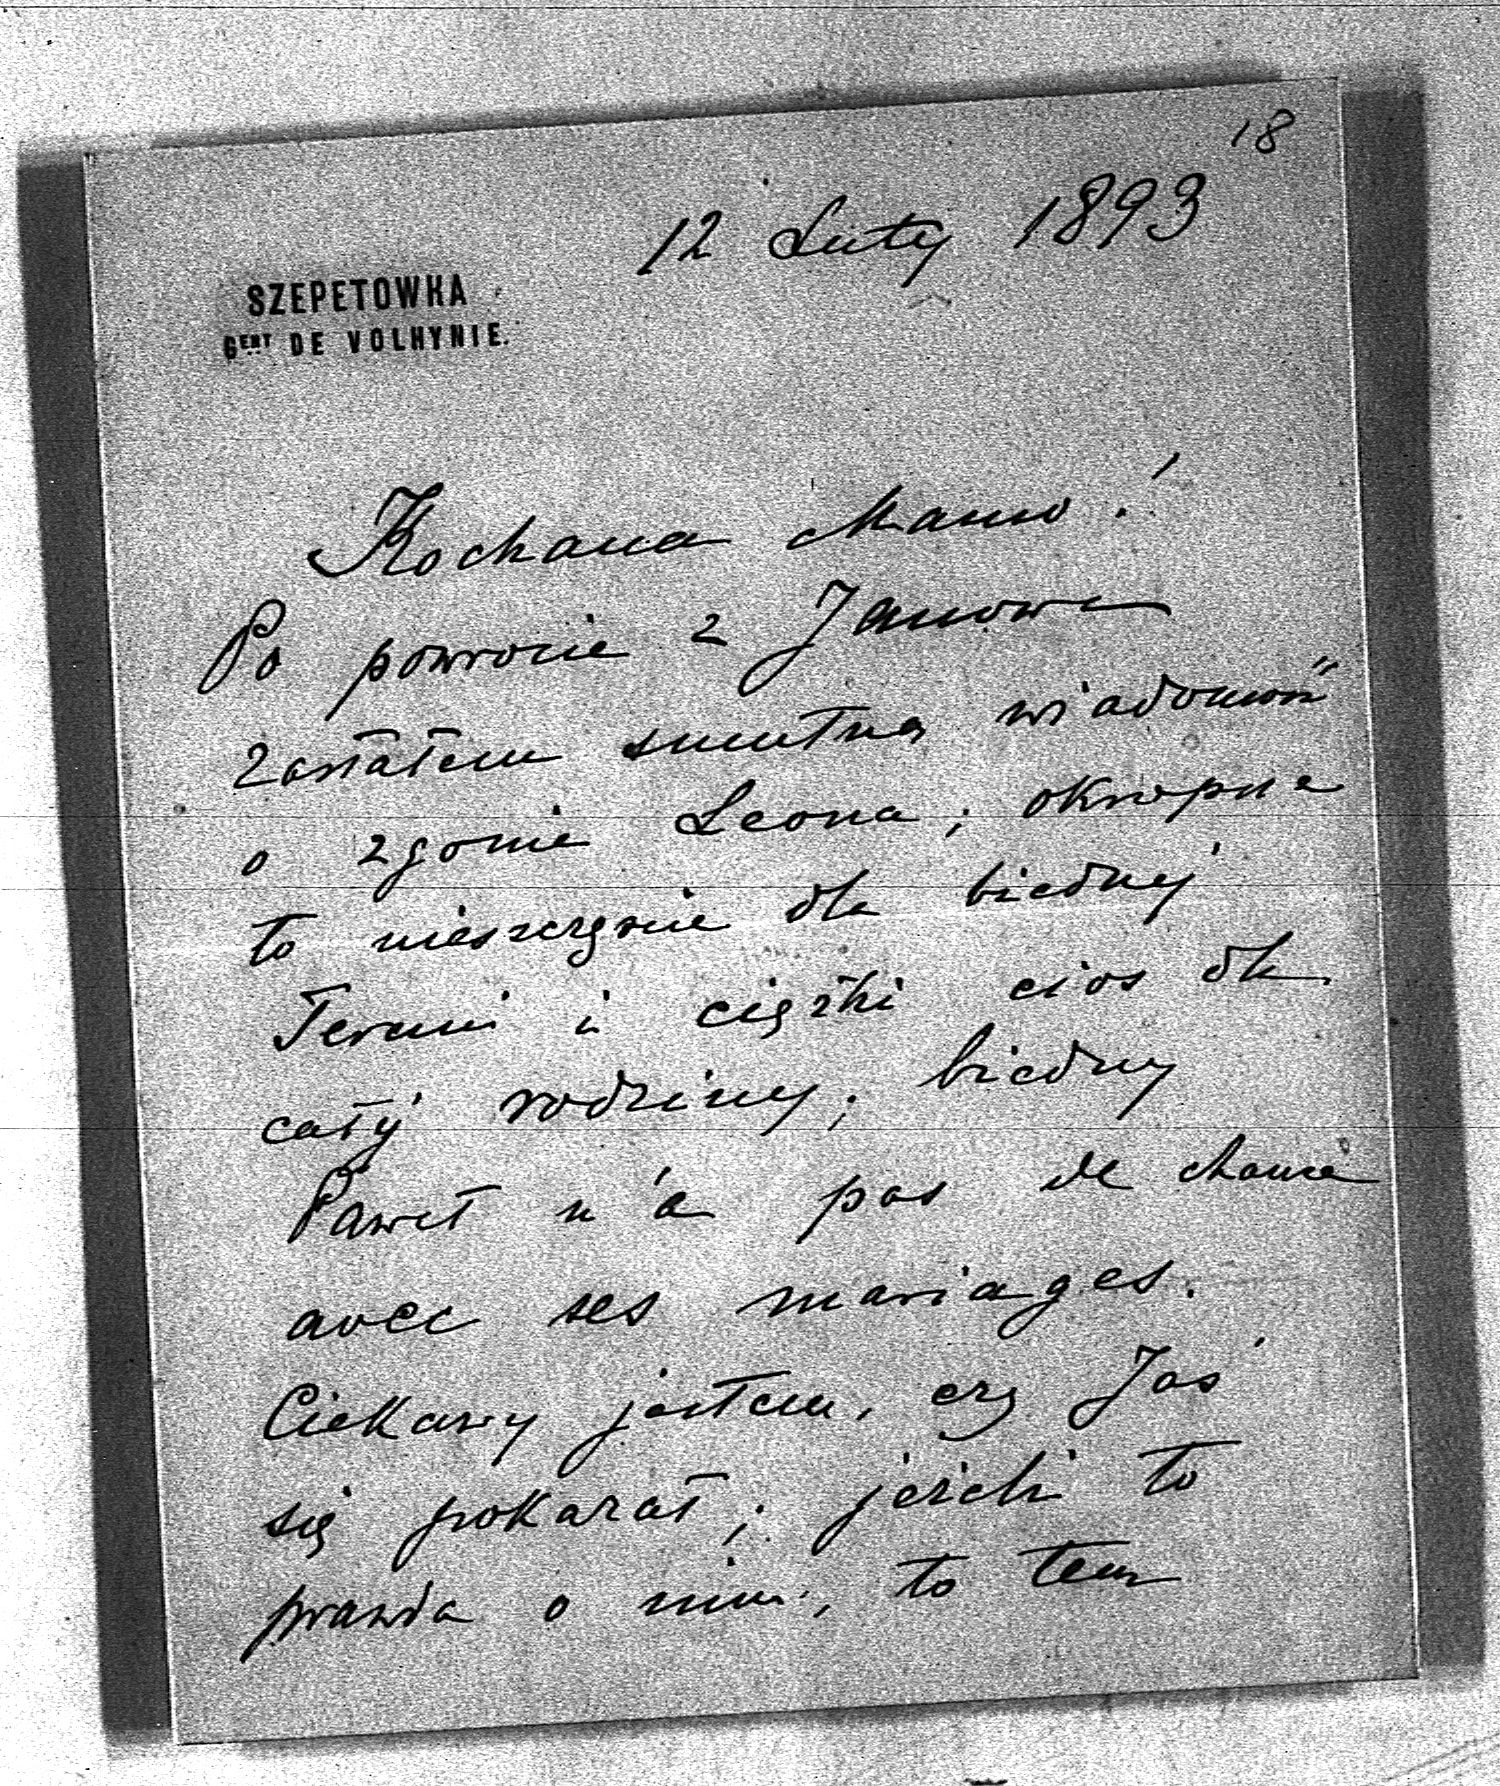 18
12 Luty 1893
SZEPETOWKA
GENT DE VOLHYNIE.
Kochana Mamo!
Po powrocie z Janowa
zastałem smutną wiadomość
o zgonie Leona; okropne
to nieszczęście dla biednéj
Tereni i ciężki cios dla
całéj rodziny; biedny
Paweł n'a pas de chance
avec ses mariages.
Ciekawy jestem, czy Jaś
się pokazał; jeżeli to
prawda o nim, to tem